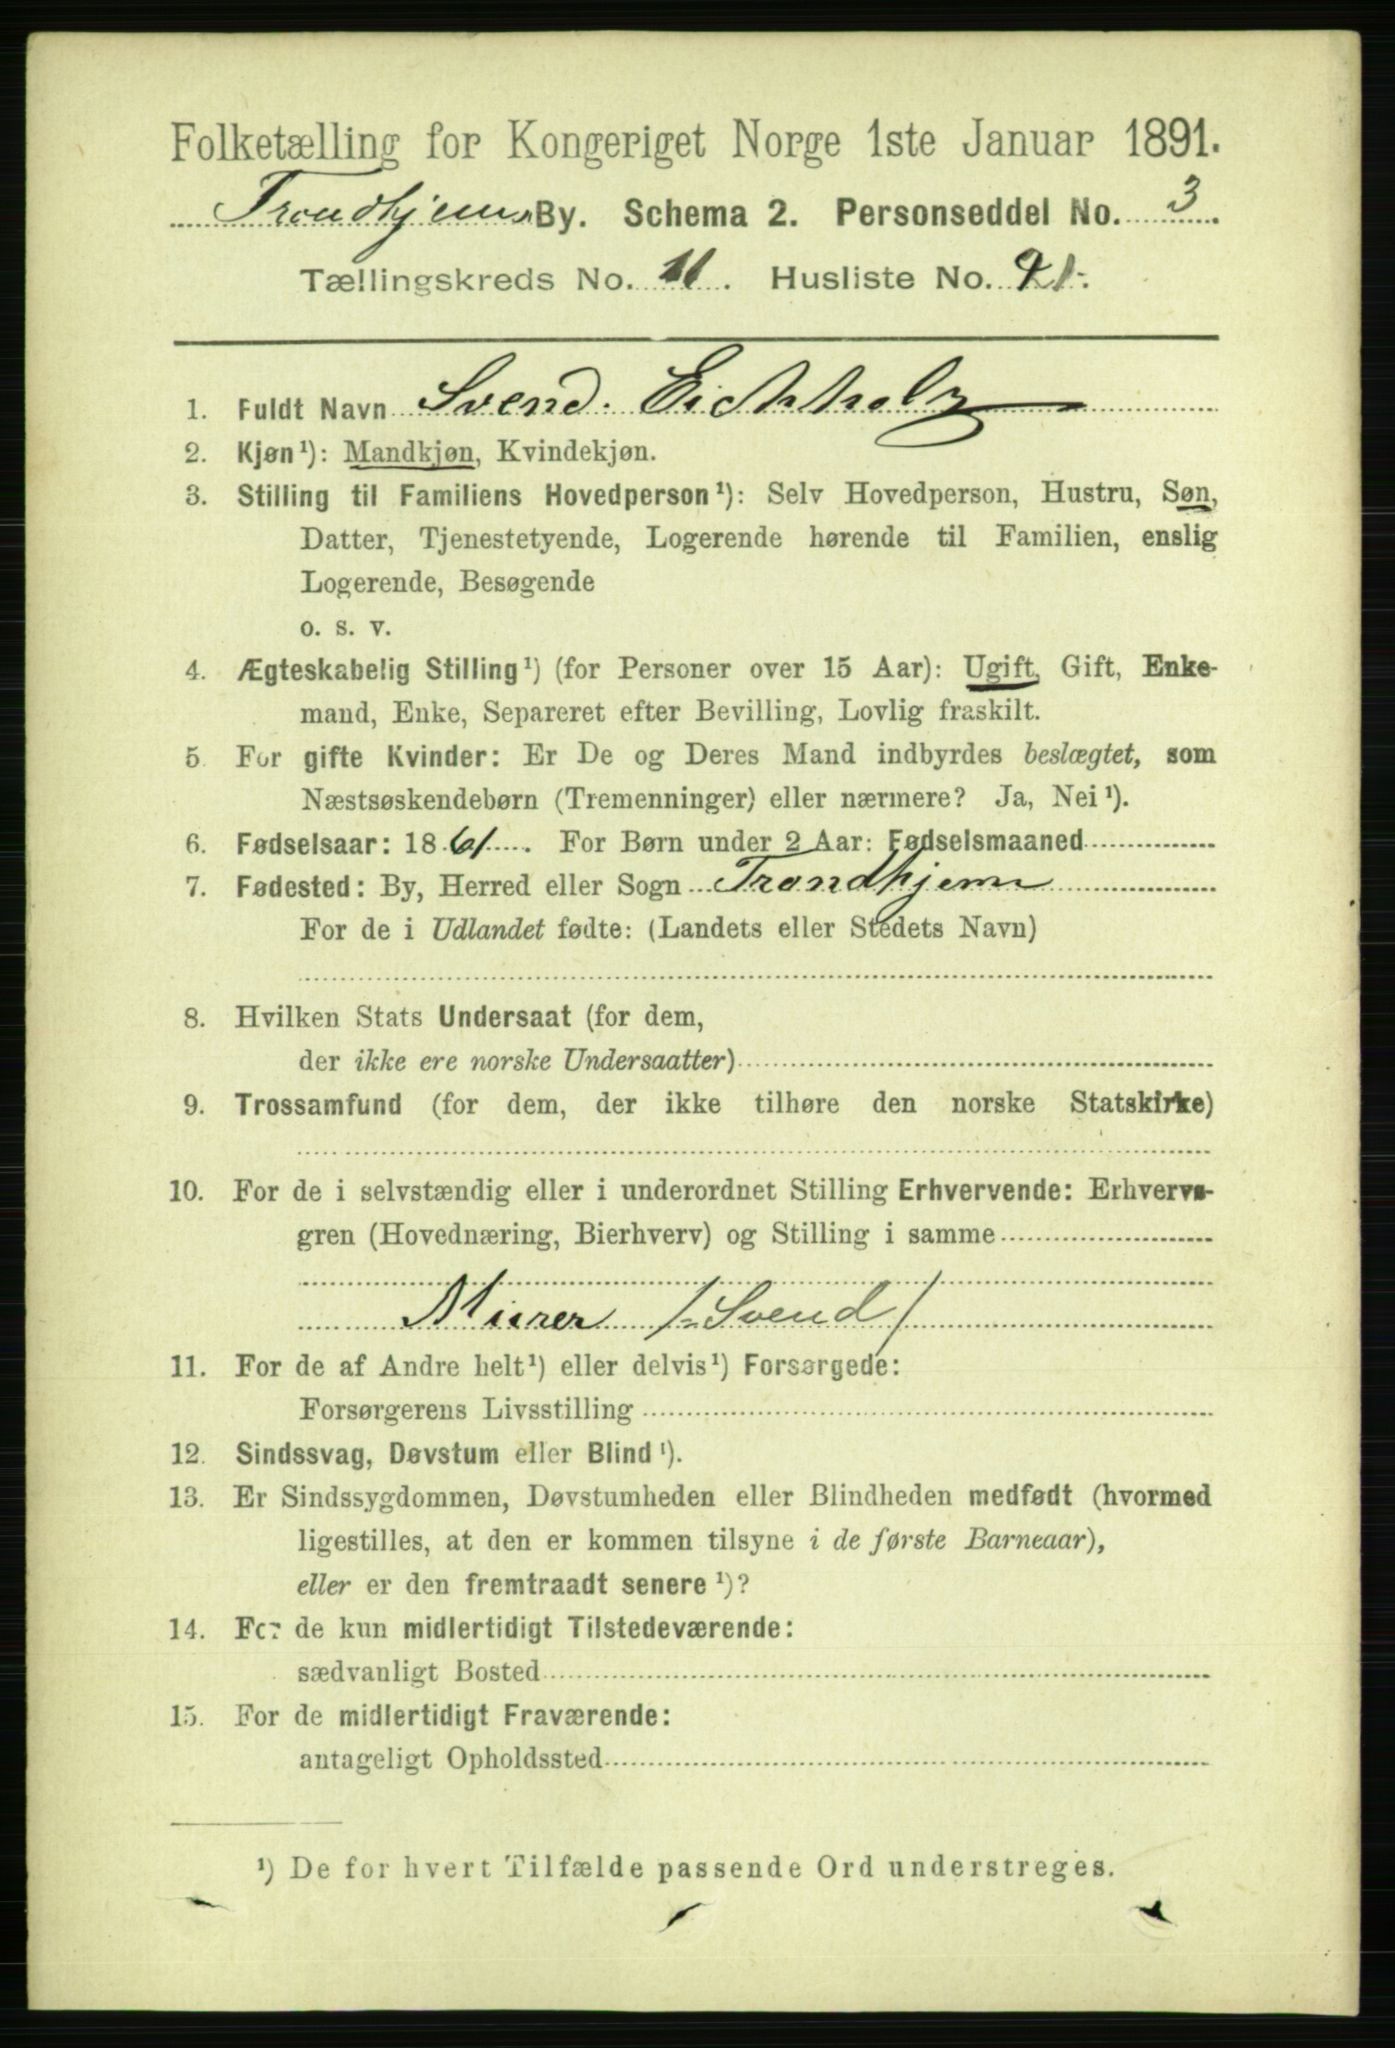 Folketælling for Kongeriget Norge 1ste Januar 1891.
Trondhjems By. Schema 2. Personseddel No. 3.
Tællingskreds No. 11. Husliste No. 21.
1. Fuldt Navn Svend Eichholz
2. Kjøn¹): Mandkjøn, Kvindekjøn.
3. Stilling til Familiens Hovedperson¹): Selv Hovedperson, Hustru, Søn,
Datter, Tjenestetyende, Logerende hørende til Familien, enslig
Logerende, Besøgende
o. s. v.
4. Ægteskabelig Stilling¹) (for Personer over 15 Aar): Ugift, Gift, Enke-
mand, Enke, Separeret efter Bevilling, Lovlig fraskilt.
5 For gifte Kvinder: Er De og Deres Mand indbyrdes beslægtet, som
Næstsøskendebørn (Tremenninger) eller nærmere? Ja, Nei¹).
6. Fødselsaar: 1861. For Børn under 2 Aar: Fødselsmaaned
7. Fødested: By, Herred eller Sogn Trondhjem
For de i Udlandet fødte: (Landets eller Stedets Navn)
8. Hvilken Stats Undersaat (for dem,
der ikke ere norske Undersaatter)
9. Trossamfund (for dem, der ikke tilhøre den norske Statskirke)
10. For de i selvstændig eller i underordnet Stilling Erhvervende: Erhvervs-
gren (Hovednæring, Bierhverv) og Stilling i samme
Murer /Svend/
11. For de af Andre helt¹) eller delvis¹) Forsørgede:
Forsørgerens Livsstilling
12. Sindssvag, Døvstum eller Blind¹).
13. Er Sindssygdommen, Døvstumheden eller Blindheden medfødt (hvormed
ligestilles, at den er kommen tilsyne i de første Barneaar),
eller er den fremtraadt senere¹)?
14. For de kun midlertidigt Tilstedeværende:
sædvanligt Bosted
15. For de midlertidigt Fraværende:
antageligt Opholdssted
¹) De for hvert Tilfælde passende Ord understreges.